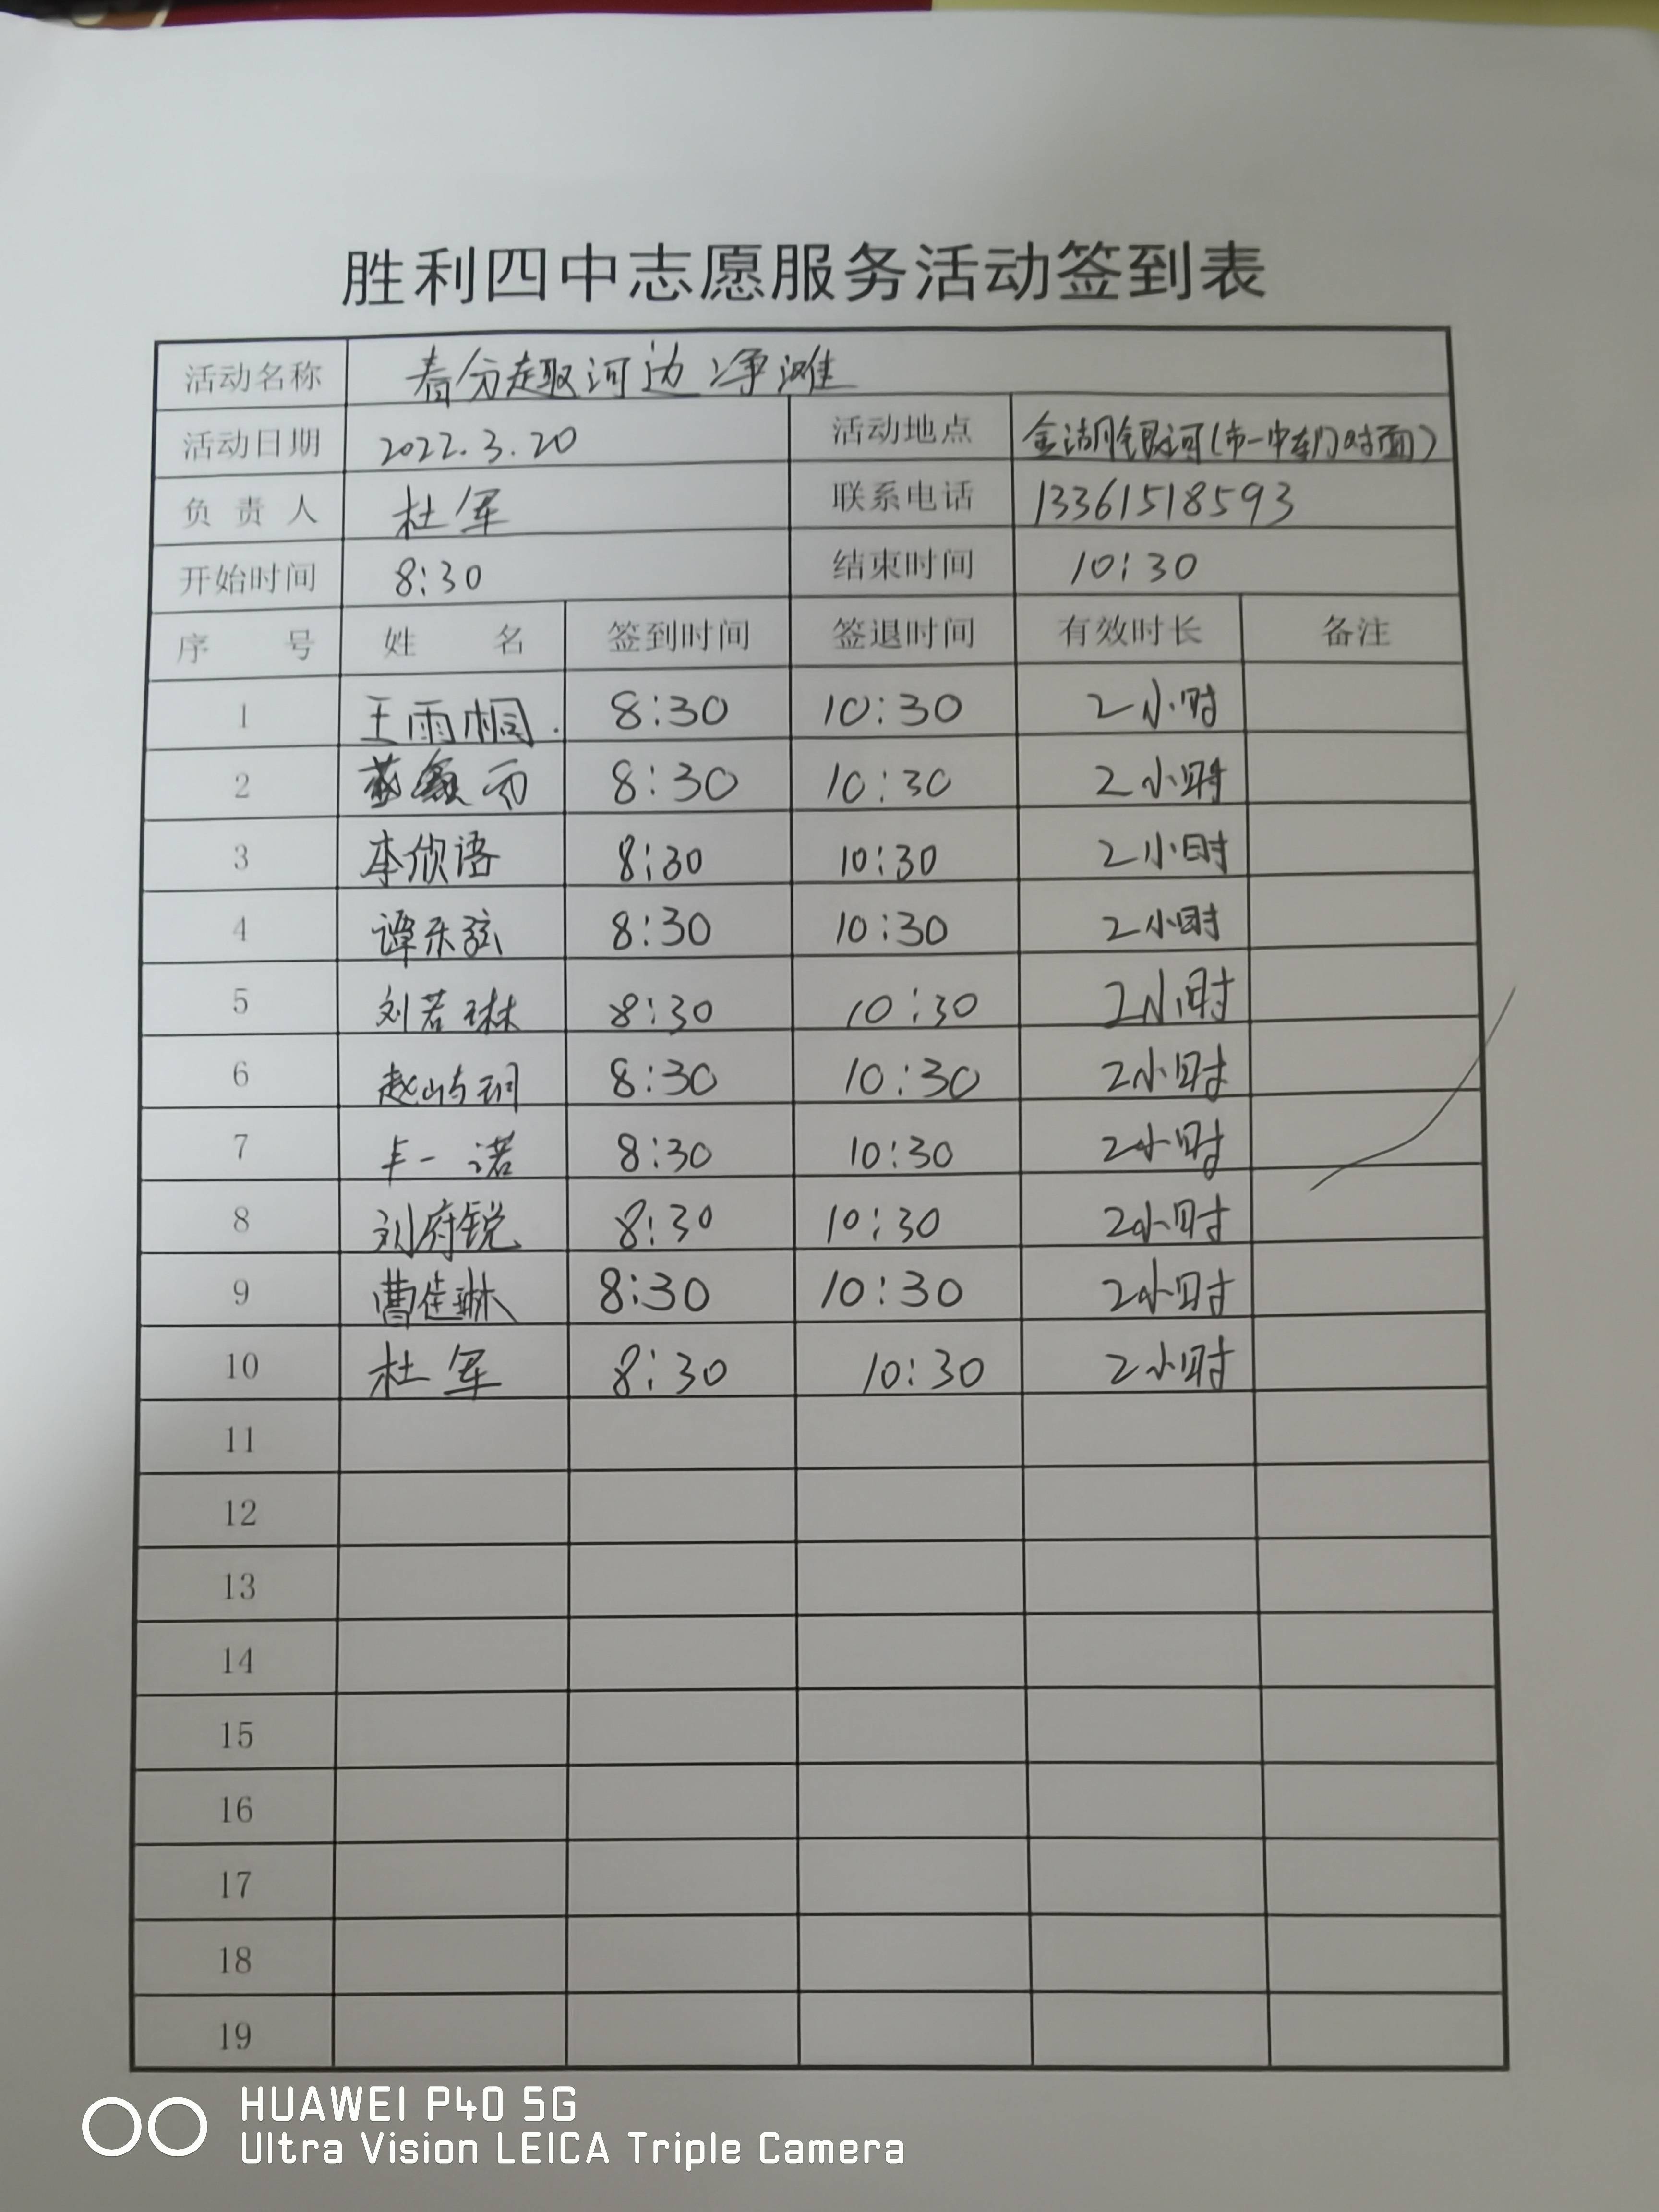 胜利四中志愿服务活动签到表
活动名称 春分趣河边净滩
活动日期 2022.3.20 活动地点 金湖银河(市一中东门对面)
负责人 杜军 联系电话 13361518593
开始时间 8:30 结束时间 10:30
序号 姓名 签到时间 签退时间 有效时长 备注
1 王雨桐 8:30 10:30 2小时
2 8:30 10:30 2小时
3 李欣语 8:30 10:30 2小时
4 谭乐弦 8:30 10:30 2小时
5 刘若琳 8:30 10:30 2小时
6 赵屿玥 8:30 10:30 2小时
7 一诺 8:30 10:30 2小时
8 刘府锐 8:30 10:30 2小时
9 曹佳琳 8:30 10:30 2小时
10 杜军 8:30 10:30 2小时
11
12
13
14
15
16
17
18
19
HUAWEI P40 5G
Ultra Vision LEICA Triple Camera